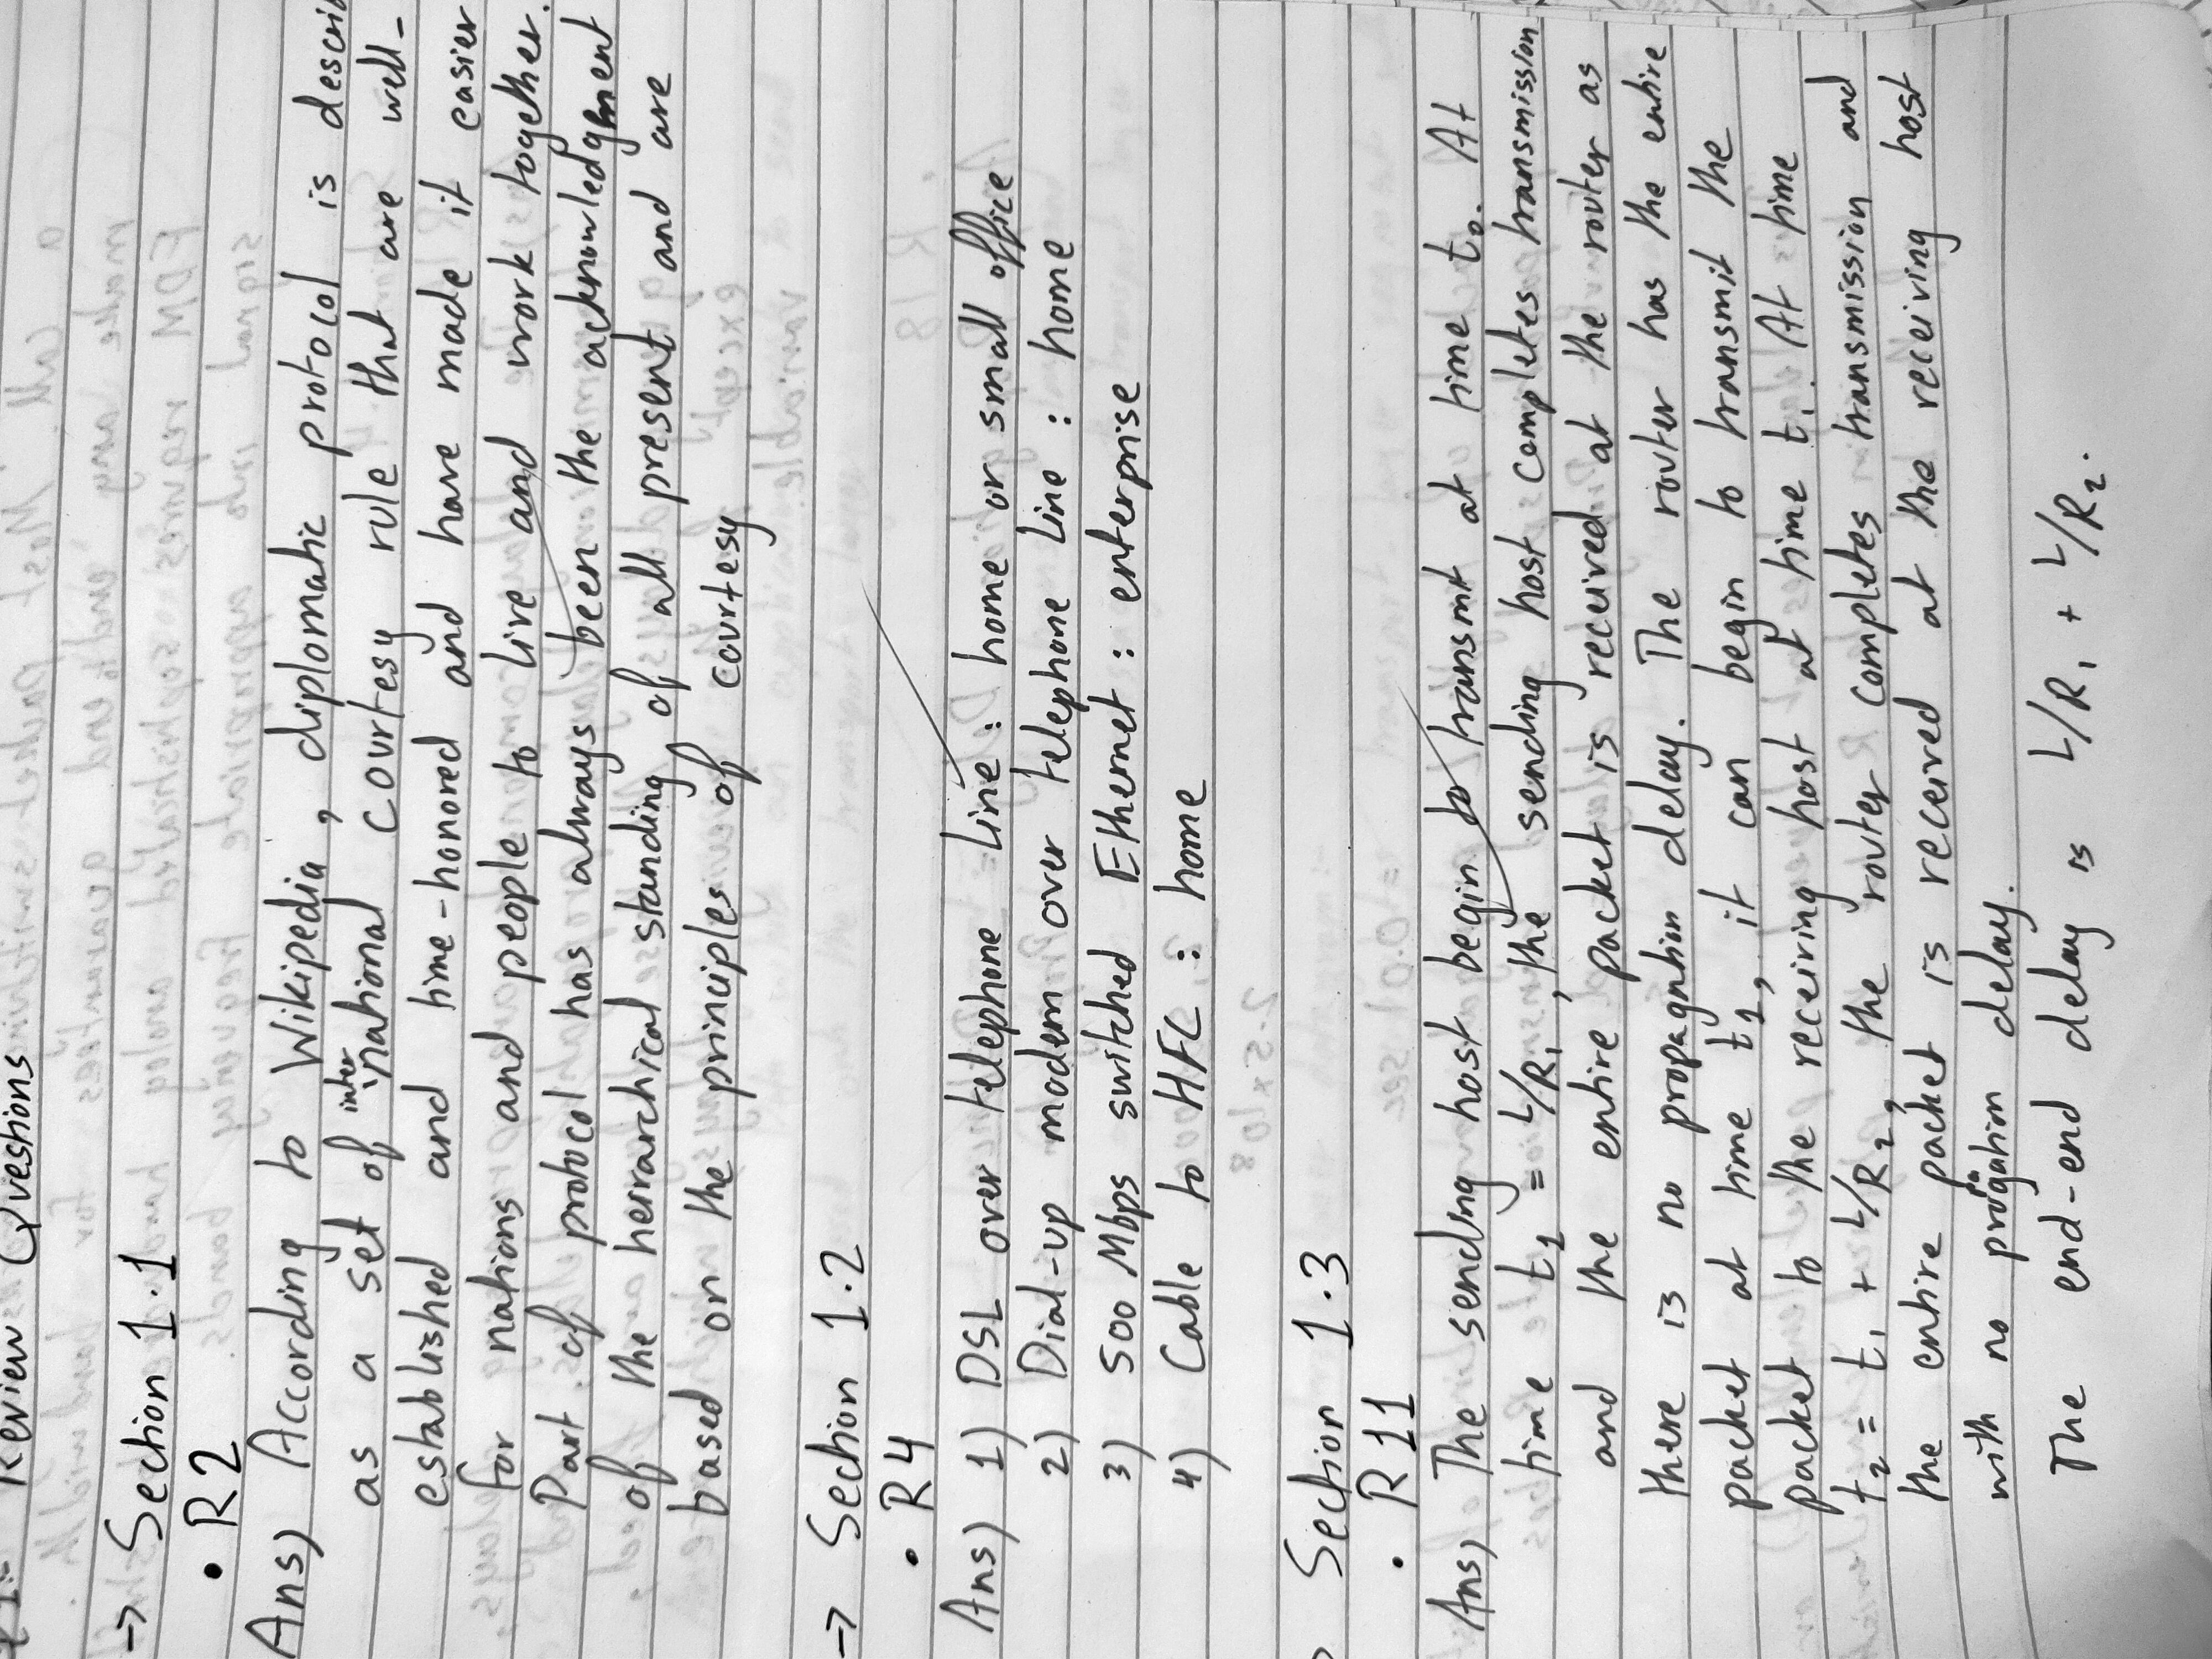 Review Questions
→ Section 1.1
• R2
Ans) According to Wikipedia, diplomatic protocol is descri
as a set of international courtesy rule that are well-
established and time-honored and have made it easier
for nations and people to live and work together.
Part of protocol has always been the acknowledgment
of the heirarchical standing of all present and are
based on the principles of courtesy
→ Section 1.2
• R4
Ans) 1) DSL over telephone line: home or small office
2) Dial-up modem over telephone Line : home
3) 500 Mbps switched Ethernet : enterprise
4) Cable to HFC : home
Section 1.3
• R11
Ans) The sending host begin to transmt at time t₀. At
time t₁ = L/R₁, the sending host completes transmission
and the entire packet is received at the router as
there is no propagation delay. The router has the entire
packet at time t₁, it can begin to transmit the
packet to the receiving host at time t₁. At time
t₂ = t₁ + L/R₂, the router completes transmission and
the entire packet is received at the receiving host
with no progation delay.
The end-end delay is L/R₁ + L/R₂.